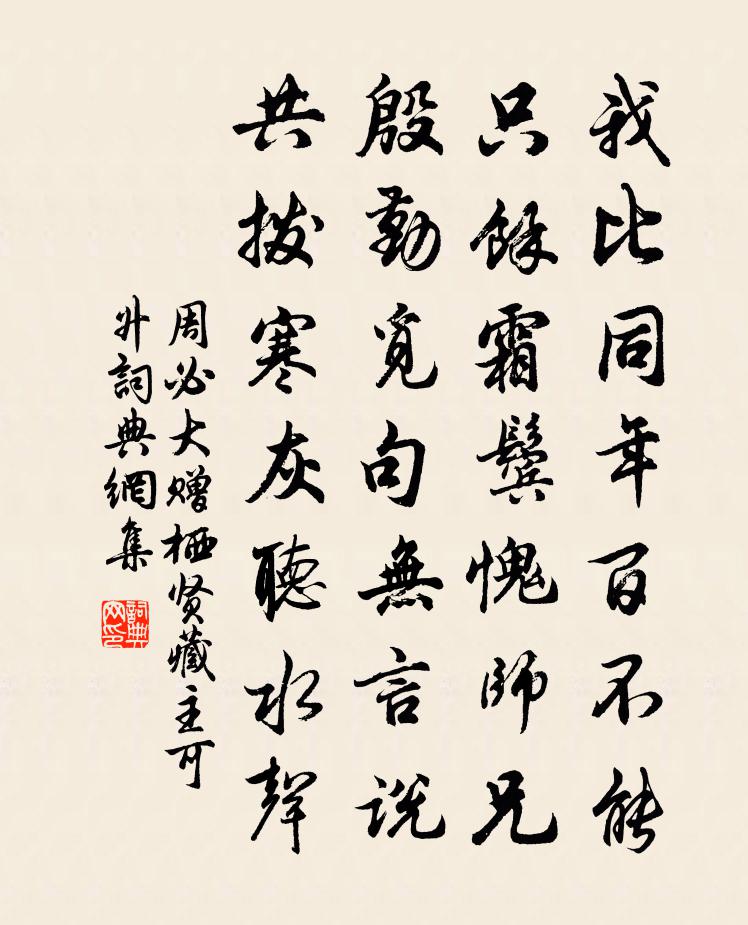 我比同年百不能
只餘霜鬢愧師兄
殷勤覓句無言說
共撥寒灰聽水聲
周必大赠栖贤藏主可
升詞典網集
詞典
网印